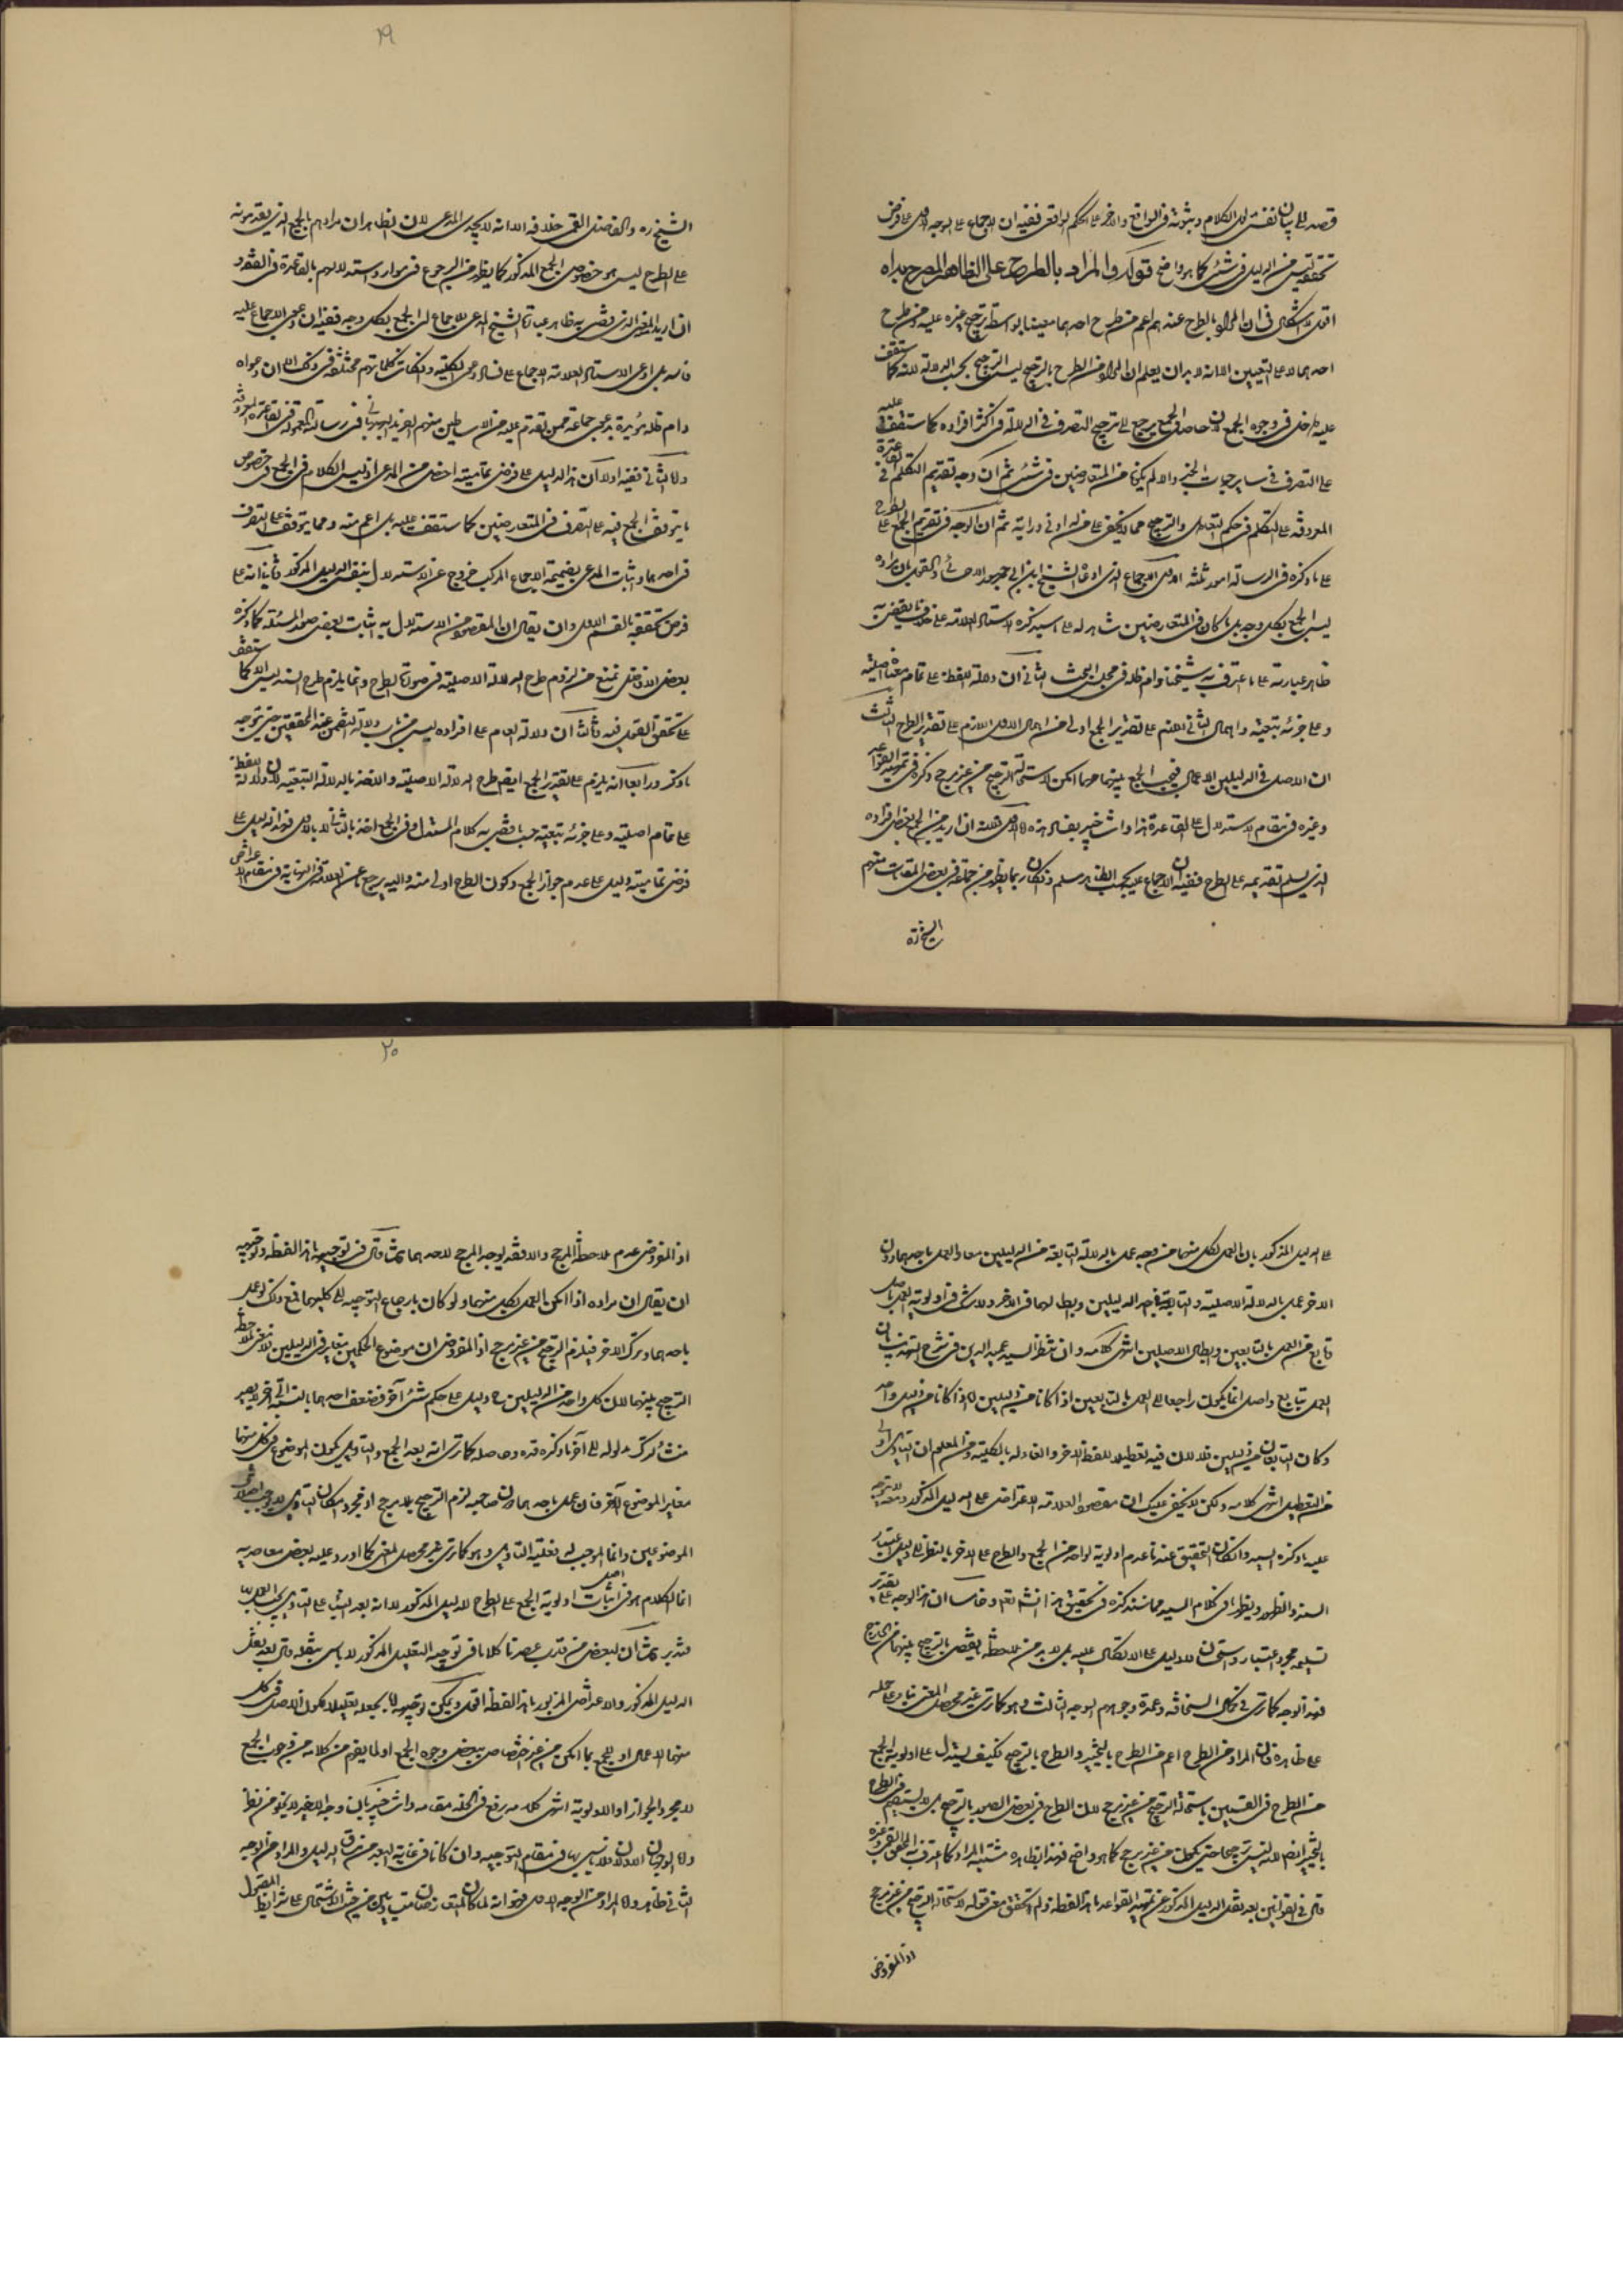 قصد الى بيان نفس تلك الكلام وثبوته في الواقع والاخر على الحكم الواقعي ففيه ان الاجماع على الوجه الاول على فرض
تحققه ليس من الدليل في شئ كما هو واضح قوله والمراد بالطرح على الظاهر المصرح به اه
اقول لا اشكال في ان المراد بالطرح عندهم اعم من طرح احدهما معينا بواسطة ترجيح غيره عليه ومن طرح
احدهما لا على التعيين الا انه لا بد ان يعلم ان المراد من الطرح بالترجيح ليس الترجيح بحسب الدلالة لانه كما ستقف
عليه داخل في وجوه الجمع لان حاصل الجمع يرجع الى ترجيح التصرف في الدلالة في اكثر افراده كما ستقف عليه
على التصرف في ساير جهات الخبر والا لم يكونا من المتعارضين في شئ ثم ان وجه تقديم التكلم في القاعدة
المعروفة على التكلم في حكم التعادل والترجيح مما لا يخفى على من له ادنى دراية ثم ان الوجه في تقديم الجمع على الطرح
على ما ذكره في الرسالة امور ثلثة الاول الاجماع الذي ادعاه الشيخ ابن ابي جمهور الاحسائي والقول بان مراده
ليس الجمع بكل وجه بل ما كان في المتعارضين شاهد له على ما سيذكره الاستاد العلامة على خلاف ما يقضي به
ظاهر عبارته على ما اعترف به شيخنا دام ظله في مجلس البحث الثاني ان دلالة اللفظ على تمام معناه اصلية
وعلى جزئه تبعية واهمال الثاني اللازم على تقدير الجمع اولى من اهمال الاول اللازم على تقدير الطرح الثالث
ان الاصل في الدليلين الاعمال فيجب الجمع بينهما مهما امكن لاستحالة الترجيح من غير مرجح ذكره في تمهيد القواعد
وغيره في مقام الاستدلال على القاعدة هذا وانت خبير بفساد هذه الاول فلانه ان اريد من الجمع بعض افراده
الذي يسلم تقديمه على الطرح ففيه ان الاجماع عليه بحسب الظاهر مسلم وان كان ربما يظهر من جماعة في بعض المقامات منهم
الشيخ ره
١٩
الشيخ ره والفاضل القمي خلافه الا انه لا يجدي المدعى لان الظاهر ان مرادهم بالجمع الذي يقدمونه
على الطرح ليس هو خصوص الجمع المذكور كما يظهر من الرجوع في موارد استدلالهم بالقاعدة في الفقه و
ان اريد المعنى الذي يقضي به ظاهر عبارة الشيخ المدعي للاجماع اي الجمع بكل وجه ففيه ان دعوى الاجماع عليه
فاسد بل ادعى الاستاد العلامة الاجماع على فساد دعوى الكلية وان كانت كلماتهم مختلفة في ذلك الا ان دعواه
دام ظله مؤيدة بدعوى جماعة ممن تقدم عليه من الاساطين منهم الفريد البهبهاني في رسالته المعمولة في القاعدة المعروفة
واما الثاني ففيه اولا ان هذا الدليل على فرض تماميته اخص من المدعى اذ ليس الكلام في الجمع في خصوص
ما يتوقف الجمع فيه على التصرف في المتعارضين كما ستقف عليه بل اعم منه ومما يتوقف على التصرف
في احدهما واثبات المدعى بضميمة الاجماع المركب خروج عن الاستدلال بنفس الدليل المذكور وثانيا انه على
فرض تحققه بالقسم الاول وان يقال ان المقصود من الاستدلال به اثبات بعض صور المسئلة كما ذكره
بعض الافاضل نمنع من لزوم طرح الدلالة الاصلية في صورة الطرح وانما يلزم طرح السند ليس الا كما ستقف
على تحقق القول فيه وثالثا ان دلالة العام على افراده ليس من باب دلالة التضمن عند المحققين حتى يتوجه
ما ذكر ورابعا انه يلزم على تقدير الجمع ايضا طرح الدلالة الاصلية والاخذ بالدلالة التبعية لان دلالة اللفظ
على تمام اصلية وعلى جزئه تبعية حسب ما قضى به كلام المستدل وفي الجمع اخذ بالثاني لا بالاول فهذا دليل على
فرض تماميته دليل على عدم جواز الجمع وكون الطرح اولى منه واليه يرجع ما عن العلامة في النهاية في مقام الاعتراض
على الدليل المذكور بان العمل بكل منهما من وجه عمل بالدلالة التابعة من الدليلين معا والعمل باحدهما دون
الاخر عمل بالدلالة الاصلية والتابعة في احد الدليلين وابطالهما في الاخر ولا شك في اولوية العمل باصل
وتابع من العمل بالتابعين وابطال الاصلين انتهى كلامه وان نظر السيد عميد الدين في شرح التهذيب بان
العمل بتابع واصل انما يكون راجعا على العمل بالتابعين اذا كانا من دليلين اما اذا كانا من دليل واحد
وكان التابعان من دليلين فلا لان فيه تعطيلا للفظ الاخر والغاء له بالكلية ومن المعلوم ان التاويل اولى
من التعطيل انتهى كلامه ولكن لا يخفى عليك ان مقصود العلامة الاعتراض على الدليل المذكور وحينئذ لا يتوجه
عليه ما ذكره السيد وان كان التحقيق عندنا عدم اولوية لواحد من الجمع والطرح على الاخر بالنظر الى دليل اعتبار
السند والظهور ويظهر في كلام السيد مما سنذكره في تحقيق هذا انشاء تعم وخامسا ان هذا الوجه على تقدير
تسليمه مجرد اعتبار واستحسان لا دليل على الاتكال عليه بل لا بد من ملاحظة ما يقضي بالترجيح بينهما من الخارج
فهذا الوجه كما ترى في كمال السخافة وعمدة وجوههم الوجه الثالث وهو كما ترى غير محصل المعنى بناء على حمله
على ظاهره فان المراد من الطرح اعم من الطرح بالتخيير والطرح بالترجيح فكيف يستدل على اولوية الجمع
من الطرح في القسمين باستحالة الترجيح من غير مرجح لان الطرح في بعض الصور بالترجيح بل لا يستقيم في الطرح
بالتخيير ايضا لانه ليس ترجيحا حتى يكون من غير مرجح كما هو واضح فهذا بظاهره مشتبه المراد كما اعترف به المحقق القمي وغيره
قال في القوانين بعد نقل الدليل المذكور عن تمهيد القواعد ما هذا لفظه ولم اتحقق معنى قوله لاستحالة الترجيح من غير مرجح
اذ المفروض
٢٠
اذ المفروض عدم ملاحظة المرجح والا فقد يوجد المرجح لاحدهما ثم قال في توجيهه ما هذا لفظه وتوجيهه
ان يقال ان مراده اذا امكن العمل بكل منهما ولو كان بارجاع التوجيه الى كليهما فمع ذلك لو عمل
باحدهما وترك الاخر فيلزم الترجيح من غير مرجح اذ المفروض ان موضوع الحكمين متغاير في الدليلين فلا معنى لملاحظة
الترجيح بينهما لان كل واحد من الدليلين ح دليل على حكم شئ آخر فضعف احدهما بالنسبة الى الآخر لا يصير
منشأ لترك مدلوله الى آخر ما ذكره قده وحاصله كما ترى انه بعد الجمع والتاويل يكون الموضوع في كل منهما
مغاير الموضوع الآخر فان عمل باحدهما دون صاحبه لزم الترجيح بلا مرجح اذ مجرد امكان التاويل لا يوجب اختلاف
الموضوعين وانما الموجب له فعلية التاويل وهو كما ترى غير محصل المعنى كما اورد عليه بعض معاصريه
انما الكلام هو في اثبات اصل اولوية الجمع على الطرح للدليل المذكور لا انه بعد البناء على التاويل يجب العمل به
فتدبر ثم ان لبعض من قارب عصرنا كلاما في توجيه التعليل المذكور لا باس بنقله قال بعد نقل
الدليل المذكور والاعتراض المزبور ما هذا لفظه اقول ويمكن توجيهه بجعله تعليلا لكون الاصل في كل
منهما الاعمال او للجمع بما امكن من غير اختصاص ببعض وجوه الجمع او لما يفهم من كلامه من وجوب الجمع
لا مجرد الجواز او الاولوية انتهى كلامه رفع في الخلد مقامه وانت خبير بان وجه الاخير لا يخلو من نظر
واما الوجهان الاولان فلا باس بهما في مقام التوجيه وان كانا في غاية البعد من مذاق الدليل والمراد من الوجه
الثاني ظاهر واما المراد من الوجه الاول فهو انه لما كان المتعارضان متساويين من حيث الاشتمال على شرايط المعمول